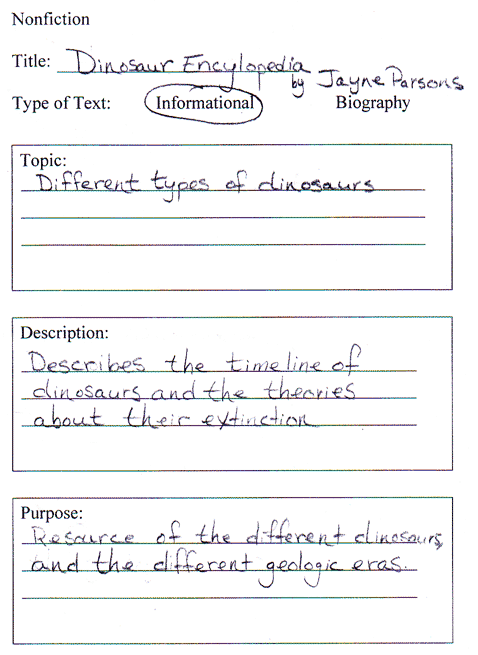 Nonfiction
Title: Dinosaur Encylopedia
by Jayne Parsons
Type of Text: Informational Biography
Topic:
Different types of dinosaurs
Description:
Describes the timeline of
dinosaurs and the theories
about their extinction
Purpose:
Resource of the different dinosaurs,
and the different geologic eras.